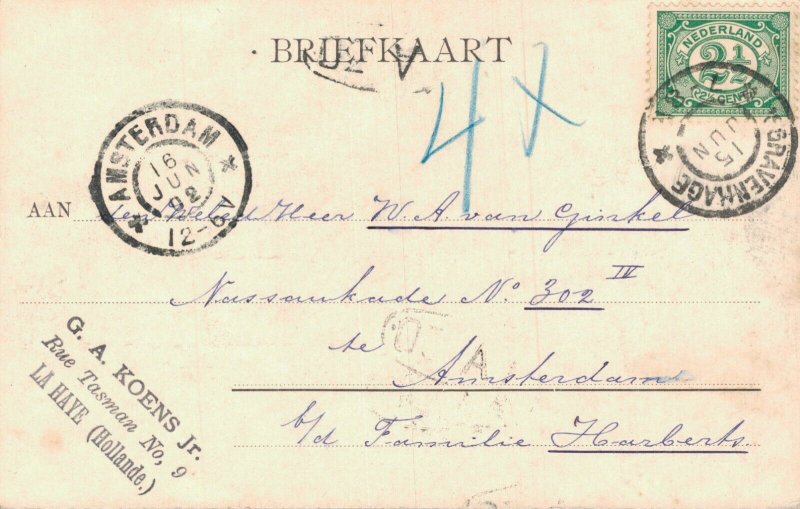 BRIEFKAART
NEDERLAND
2½
2½ CENT
'S GRAVENHAGE
15
JUN
AMSTERDAM
16
JUN
02
12-6V
4x
AAN den Weled Heer W. A. van Ginkel
Nassaukade No. 302 IV
te
Amsterdam
b/d Familie Harberts.
G. A. KOENS Jr.
Rue Tasman No, 9
LA HAYE (Hollande.)